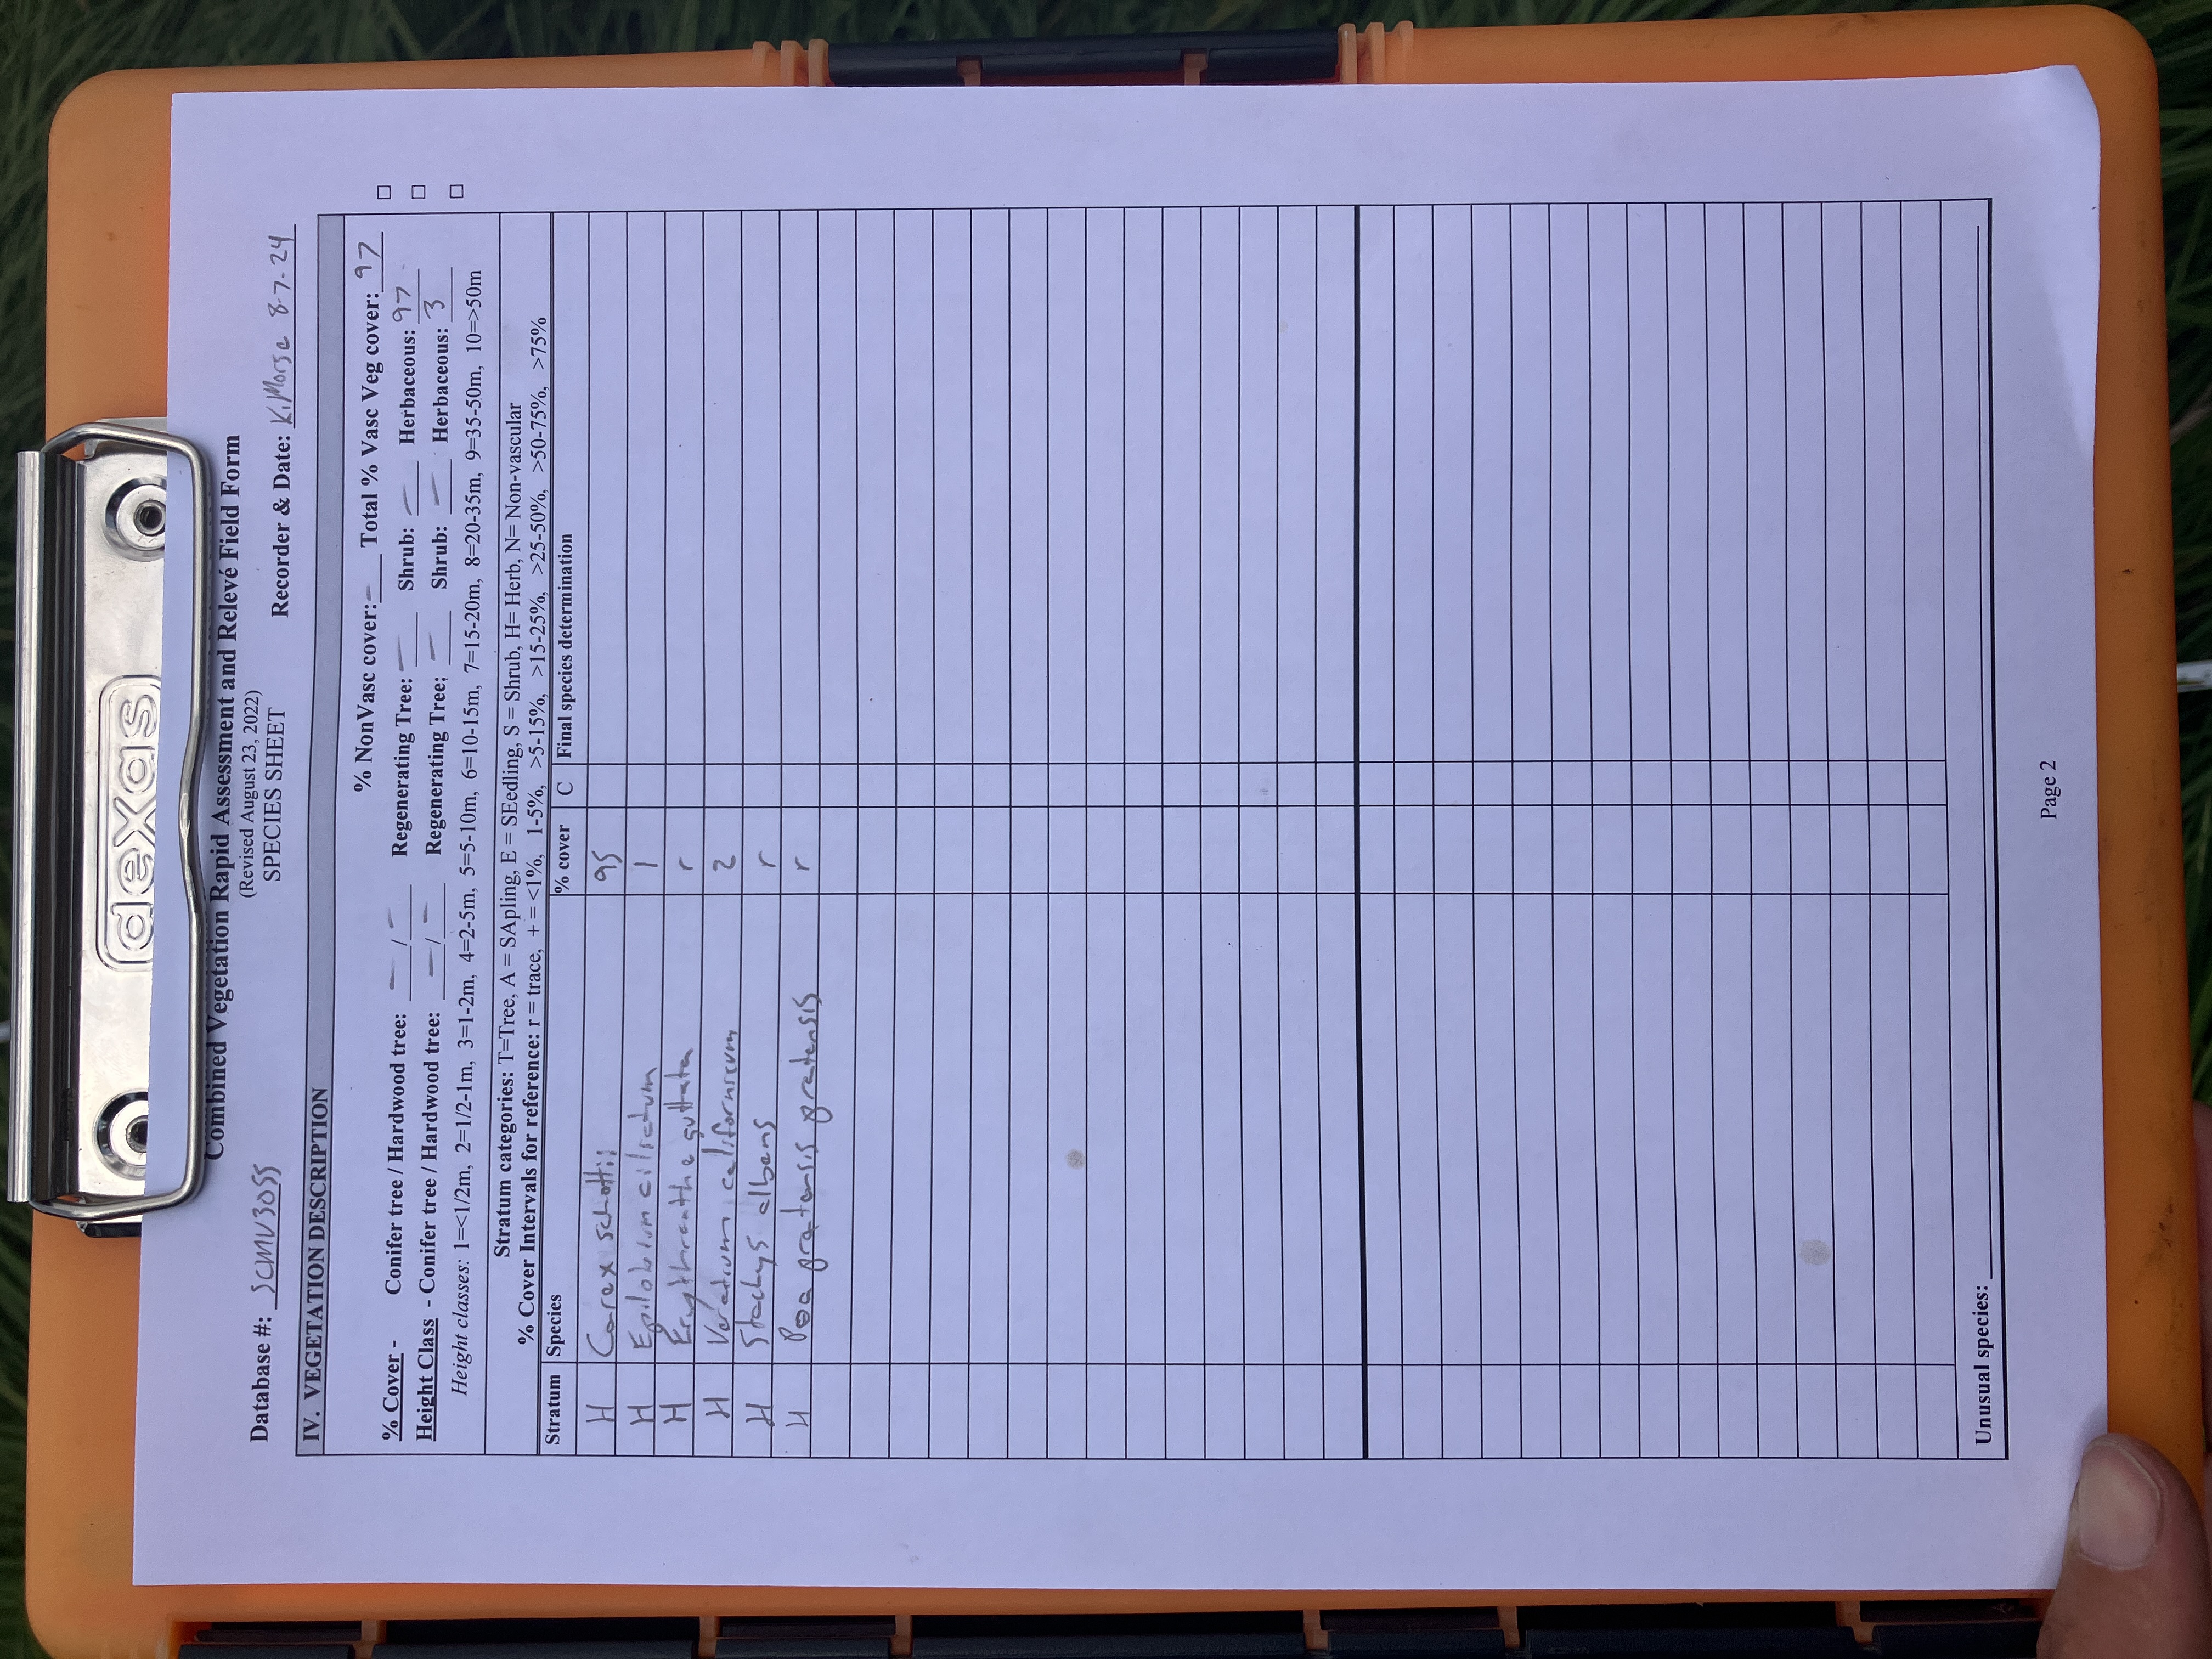 dexas
Combined Vegetation Rapid Assessment and Relevé Field Form
(Revised August 23, 2022)
SPECIES SHEET
Database #: SCMV3055 Recorder & Date: K. Morse 8-7-24
IV. VEGETATION DESCRIPTION
% NonVasc cover: – Total % Vasc Veg cover: 97 □
% Cover - Conifer tree / Hardwood tree: – / – Regenerating Tree: – Shrub: – Herbaceous: 97 □
Height Class - Conifer tree / Hardwood tree: – / – Regenerating Tree: – Shrub: – Herbaceous: 3 □
Height classes: 1=<1/2m, 2=1/2-1m, 3=1-2m, 4=2-5m, 5=5-10m, 6=10-15m, 7=15-20m, 8=20-35m, 9=35-50m, 10=>50m
Stratum categories: T=Tree, A = SApling, E = SEedling, S = Shrub, H= Herb, N= Non-vascular
% Cover Intervals for reference: r = trace, + = <1%, 1-5%, >5-15%, >15-25%, >25-50%, >50-75%, >75%
Stratum Species % cover C Final species determination
H Carex schottii 95
H Epilobium ciliatum 1
H Erythranthe guttata r
H Veratrum californicum 2
H Stachys albens r
H Poa pratensis pratensis r
Unusual species:
Page 2